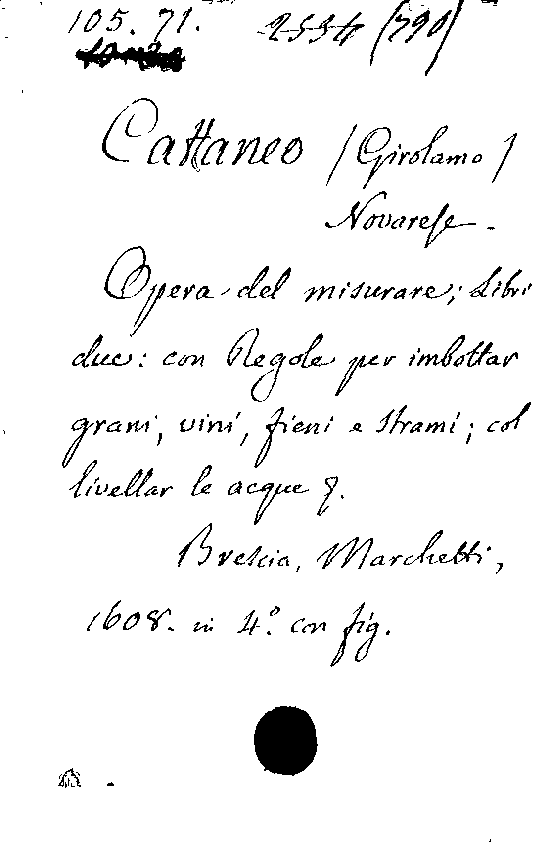 105. 71. 2534 (790)
Cattaneo (Girolamo)
Novarese.
Opera del misurare; Libri
due: con Regole per imbottar
grani, vini, fieni e strami; col
livellar le acque &.
Brescia, Marchetti,
1608. in 4.º con fig.